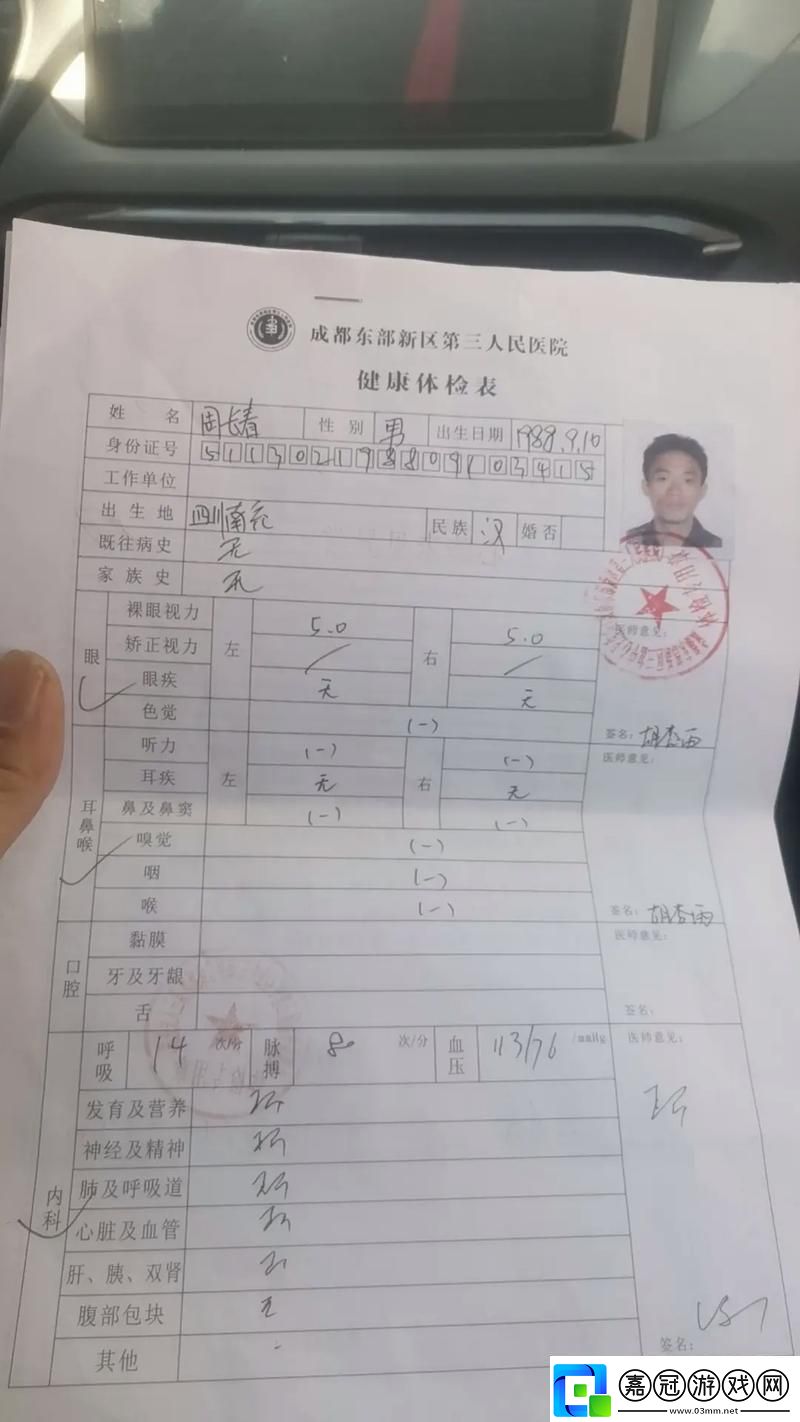 成都东部新区第三人民医院
健康体检表
姓名 周长春 性别 男 出生日期 1988.9.10
身份证号 511302198809103415
工作单位
出生地 四川南充 民族 汉 婚否
既往病史 无
家族史 无
眼 裸眼视力 左 5.0 右 5.0 医师意见：
矫正视力 / /
眼疾 无 无
色觉 (-) 签名：
听力 左 (-) 右 (-) 医师意见：
耳疾 无 无
耳鼻喉 鼻及鼻窦 (-) (-)
嗅觉 (-)
咽 (-)
喉 (-) 签名：
口腔 黏膜 医师意见：
牙及牙龈
舌 签名：
呼吸 14 次/分 脉搏 80 次/分 血压 113/76 /mmHg 医师意见：
发育及营养
神经及精神
内科 肺及呼吸道
心脏及血管
肝、胰、双肾
腹部包块 无
其他 签名：
嘉冠游戏网
www.03mm.net